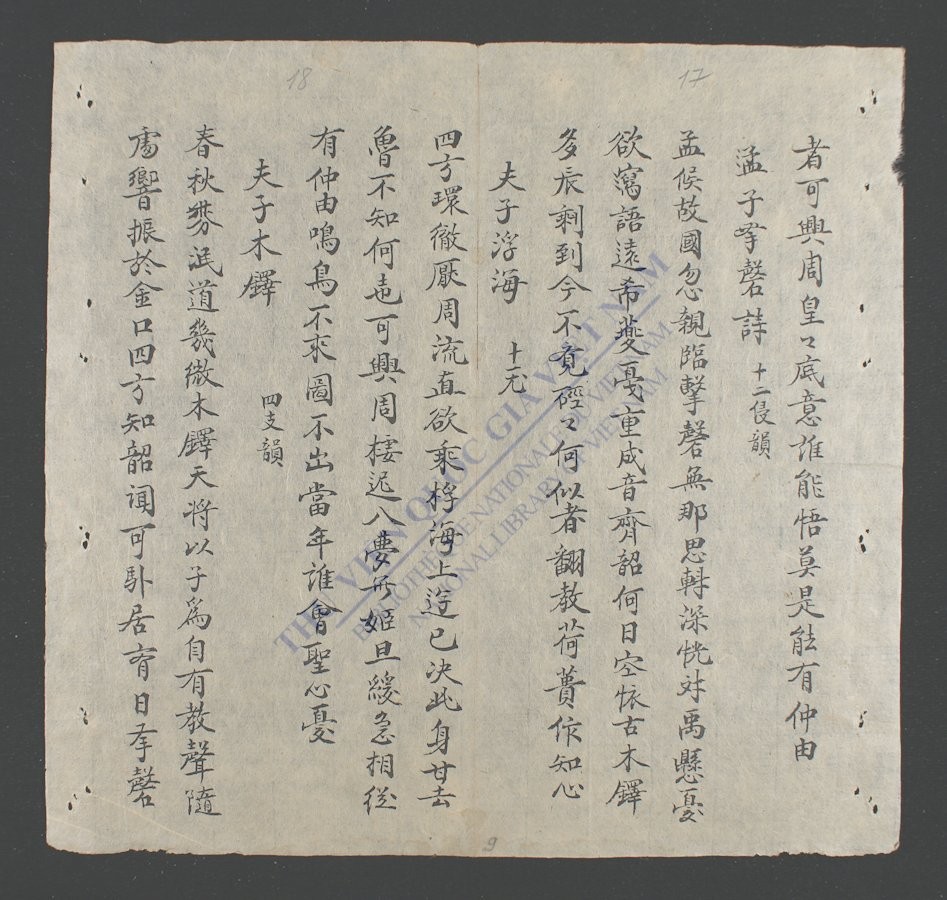 17
者可興周皇々底意誰能悟莫是能有仲由
孟子孥磬詩 十二侵韻
孟候故國忽親臨擊磬無那思轉深恍対禹懸憂
欲寫語遠希夔戞重成音齊韶何日空懷古木鐸
多辰剩到今不覓硜々何似者翻教荷蕢作知心
夫子浮海 十一尤
四方環徹厭周流直欲乘桴海上逰已决此身甘去
魯不知何地可興周棲遲八夢無姬旦緩急相從
有仲由鳴鳥不來圖不出當年誰會聖心憂
18
夫子木鐸 四支韻
春秋泯道幾微木鐸天将以子爲自有教聲隨
處響振於金口四方知韶闻可卧居有日孥磬
9
THƯ VIỆN QUỐC GIA VIỆT NAM
BIBLIOTHÈQUE NATIONALE DU VIETNAM
NATIONAL LIBRARY OF VIETNAM